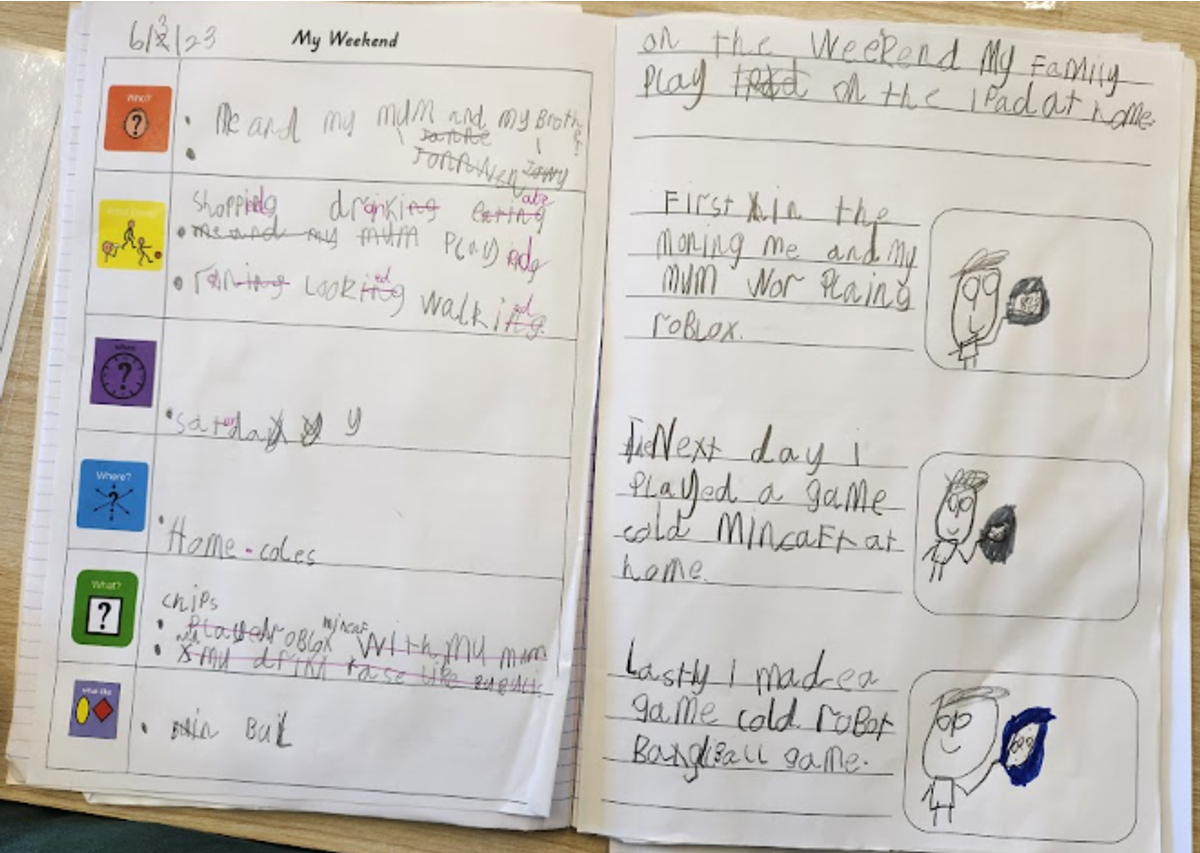 6/3/23 My Weekend
Who?
Me and my mum and my Brother
shopping drinking
me and my mum Play
looking walki
When
saturday y
Where?
Home. coles
What?
chips
Played roBlox mincaf with my mum
my drink tase like
What like
Bal
on the Weekend My FaMily
Play on the iPad at home.
First in the
moning me and My
MUM wor Plaing
roBlox.
Next day i
Played a gaMe
cold MincaFt at
home.
Lastly i made a
gaMe cold robot
Ball game.